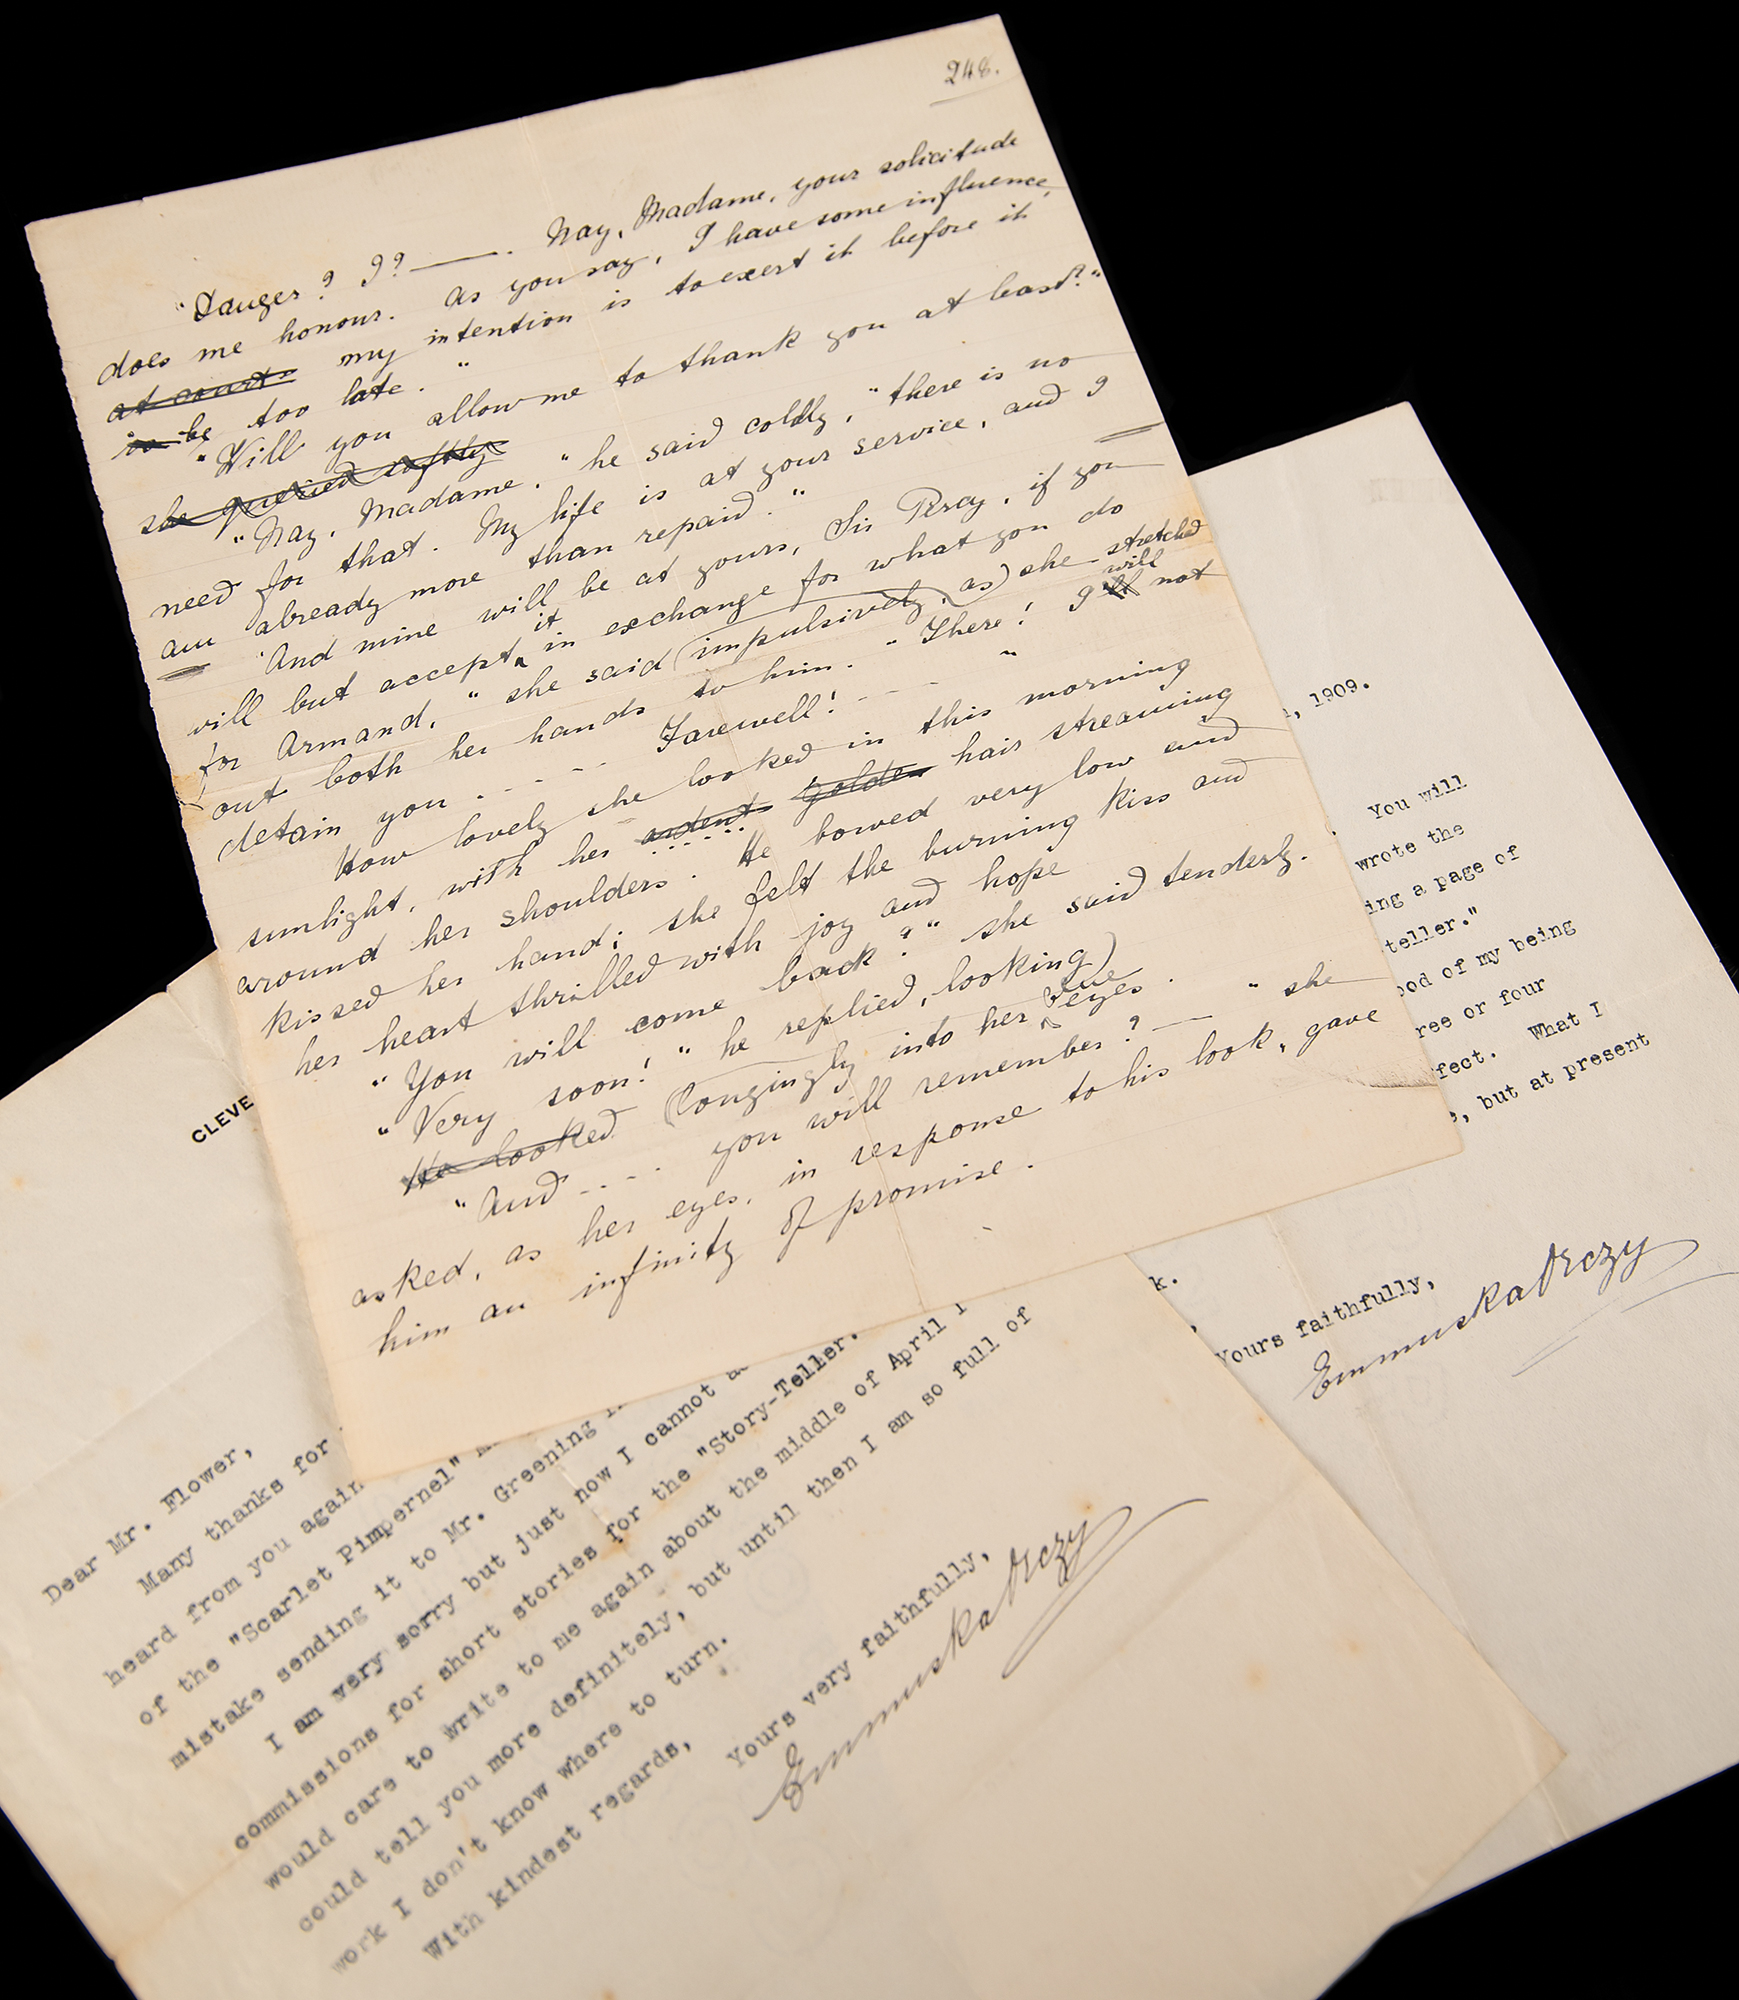 248.
"Danger? I?? ——. Nay, Madame, your solicitude
does me honour. As you say, I have some influence,
at court my intention is to exert it before it
is be too late."
"Will you allow me to thank you at least?"
she queried softly
"Nay, Madame," he said coldly, "there is no
need for that. My life is at your service, and I
am already more than repaid."
"And mine will be at yours, Sir Percy, if you
will but accept it in exchange for what you do
for Armand," she said (impulsively, as) she stretched
out both her hands to him. "There! I will not
detain you .... Farewell! ...."
How lovely she looked in this morning
sunlight, with her ardent golden hair streaming
around her shoulders. He bowed very low and
kissed her hand; she felt the burning kiss and
her heart thrilled with joy and hope
"You will come back?" she said tenderly.
"Very soon!" he replied, looking)
He looked (longingly into her blue eyes.
"And .... you will remember? ——" she
asked, as her eyes, in response to his look, gave
him an infinity of promise.
, 1909.
You will
wrote the
ing a page of
teller."
ood of my being
ree or four
fect. What I
, but at present
k.
Yours faithfully,
Emmuska Orczy
CLEVE
Dear Mr. Flower,
Many thanks for
heard from you again
of the "Scarlet Pimpernel"
mistake sending it to Mr. Greening
I am very sorry but just now I cannot
commissions for short stories for the "Story-Teller.
would care to write to me again about the middle of April I
could tell you more definitely, but until then I am so full of
work I don't know where to turn.
With kindest regards,
Yours very faithfully,
Emmuska Orczy